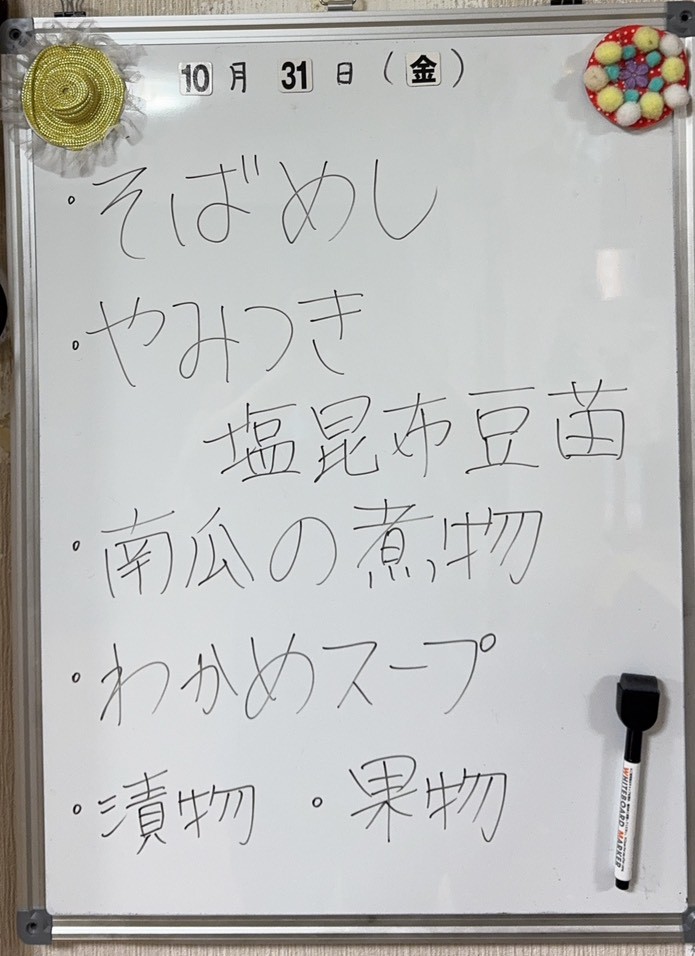 10月 31日(金)
・そばめし
・やみつき
塩昆布豆苗
・南瓜の煮物
・わかめスープ
・漬物 ・果物
WHITEBOARD MARKER